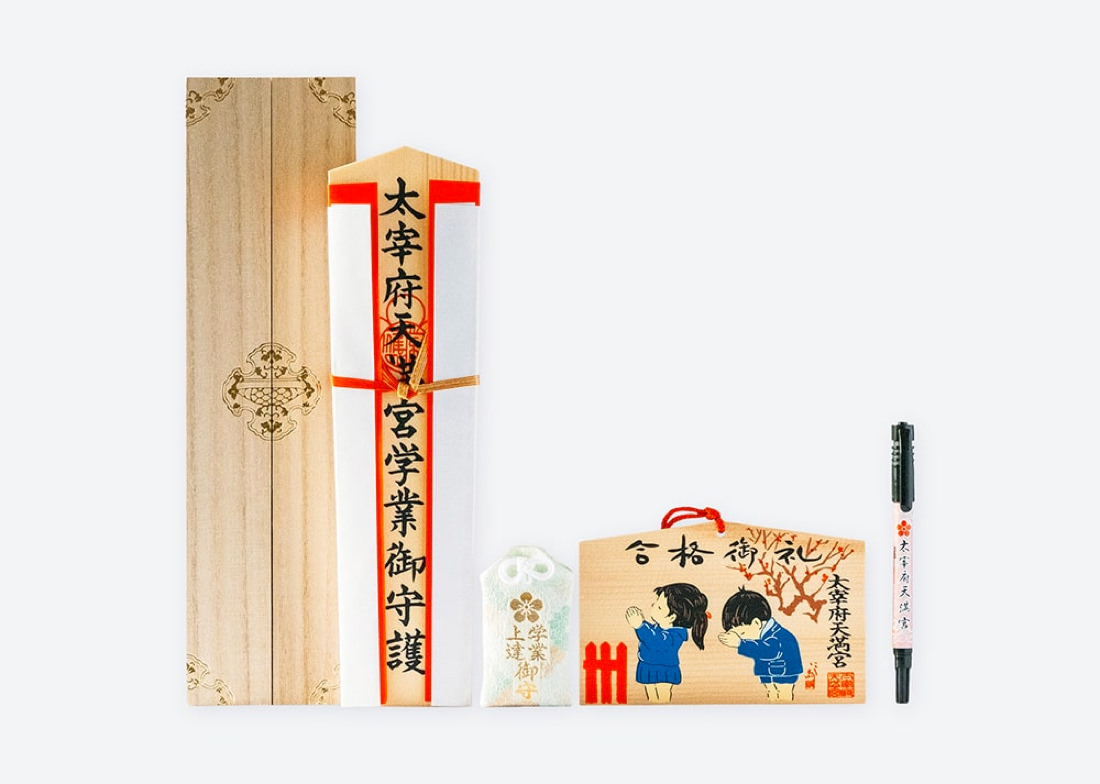 太宰府天満宮学業御守護
学業
上達
御守
合格御礼
太宰府天満宮
太宰府天満宮